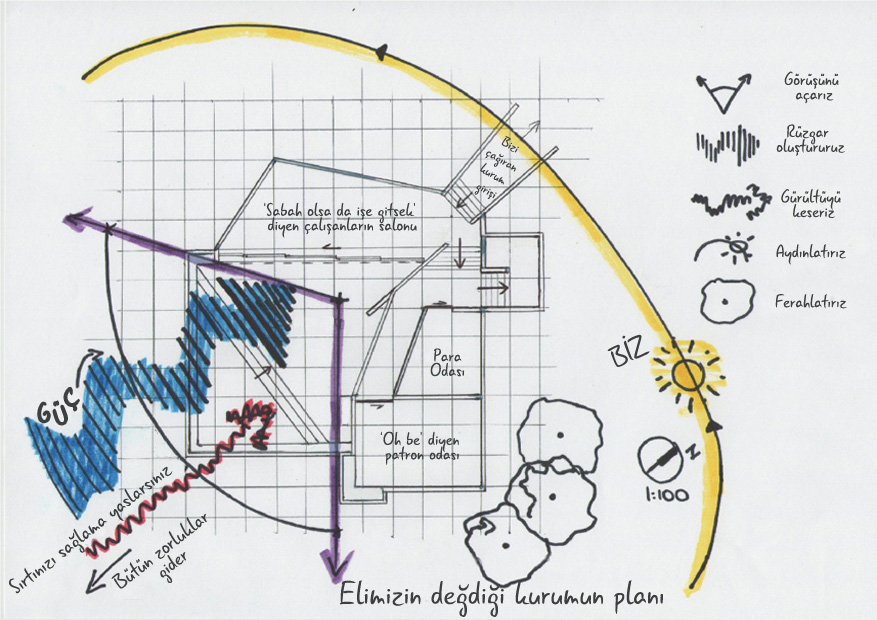 Görüşünü
açarız
Rüzgar
oluştururuz
Gürültüyü
keseriz
Aydınlatırız
Ferahlatırız
Bizi
çağıran
kurum
girişi
'Sabah olsa da işe gitsek'
diyen çalışanların salonu
BİZ
Para
Odası
'Oh be' diyen
patron odası
GÜÇ
Sırtınızı sağlama yaslarsınız
Bütün zorluklar
gider
N
1:100
Elimizin değdiği kurumun planı